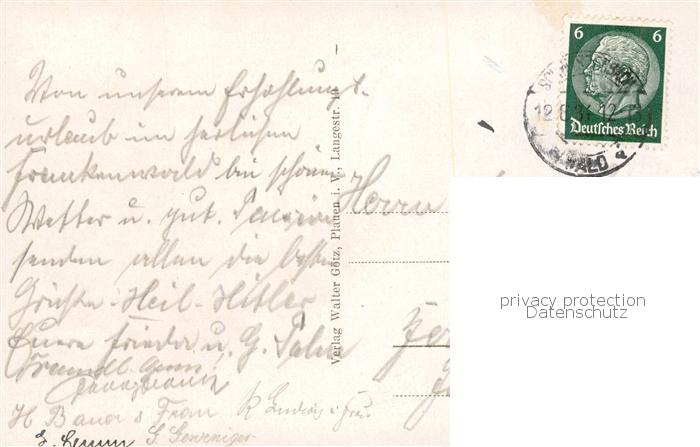 Von unserem Erholungs-
urlaub im herlichen
Frankenwald bei schönem
Wetter u. gut. Pension
senden allen die besten
Grüße. Heil-Hitler
Eure Frieda u. G.
H Bauer & Frau
R Ludwig u. Frau
Verlag Walter Götz, Plauen i. V., Langestr.
Herrn
6 6
Deutsches Reich
12
WALD
privacy protection
Datenschutz